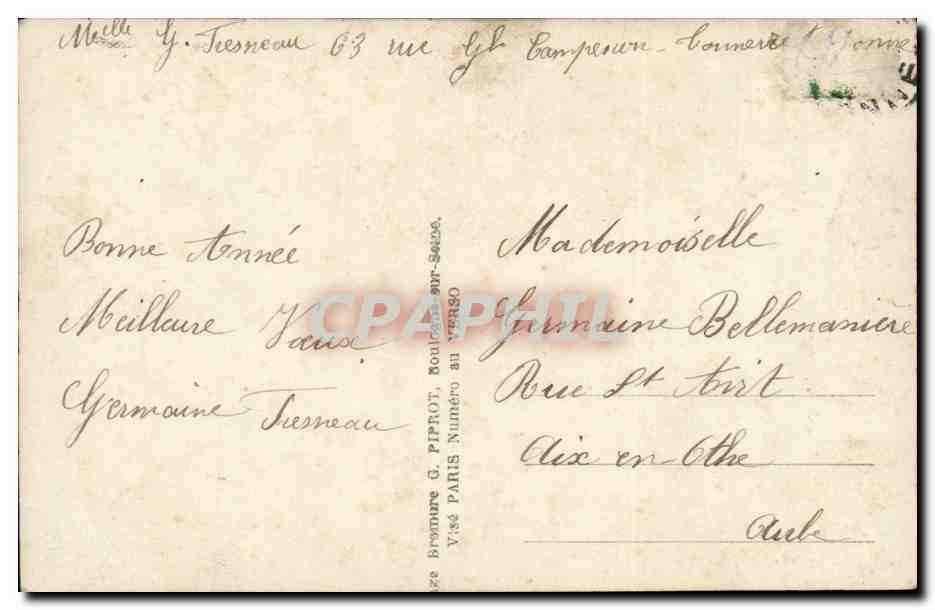 Melle G. Fresneau 63 rue Gl Campenon - Tonnerre Yonne
Bonne Année
Meilleure Voeux
Germaine Fresneau
Bromure G. PIPROT, Boulogne-sur-Seine.
Visé PARIS Numéro au VERSO
CPAPHIL
Mademoiselle
Germaine Bellemanière
Rue St Avit
Aix-en-Othe
Aube